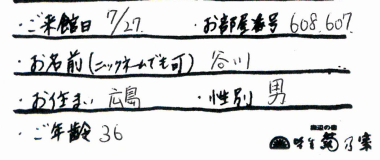 ・ご来館日 7/27 ・お部屋番号 608,607
・お名前(ニックネームでも可) 谷川
・お住まい 広島 ・性別 男
・ご年齢 36
海辺の宿